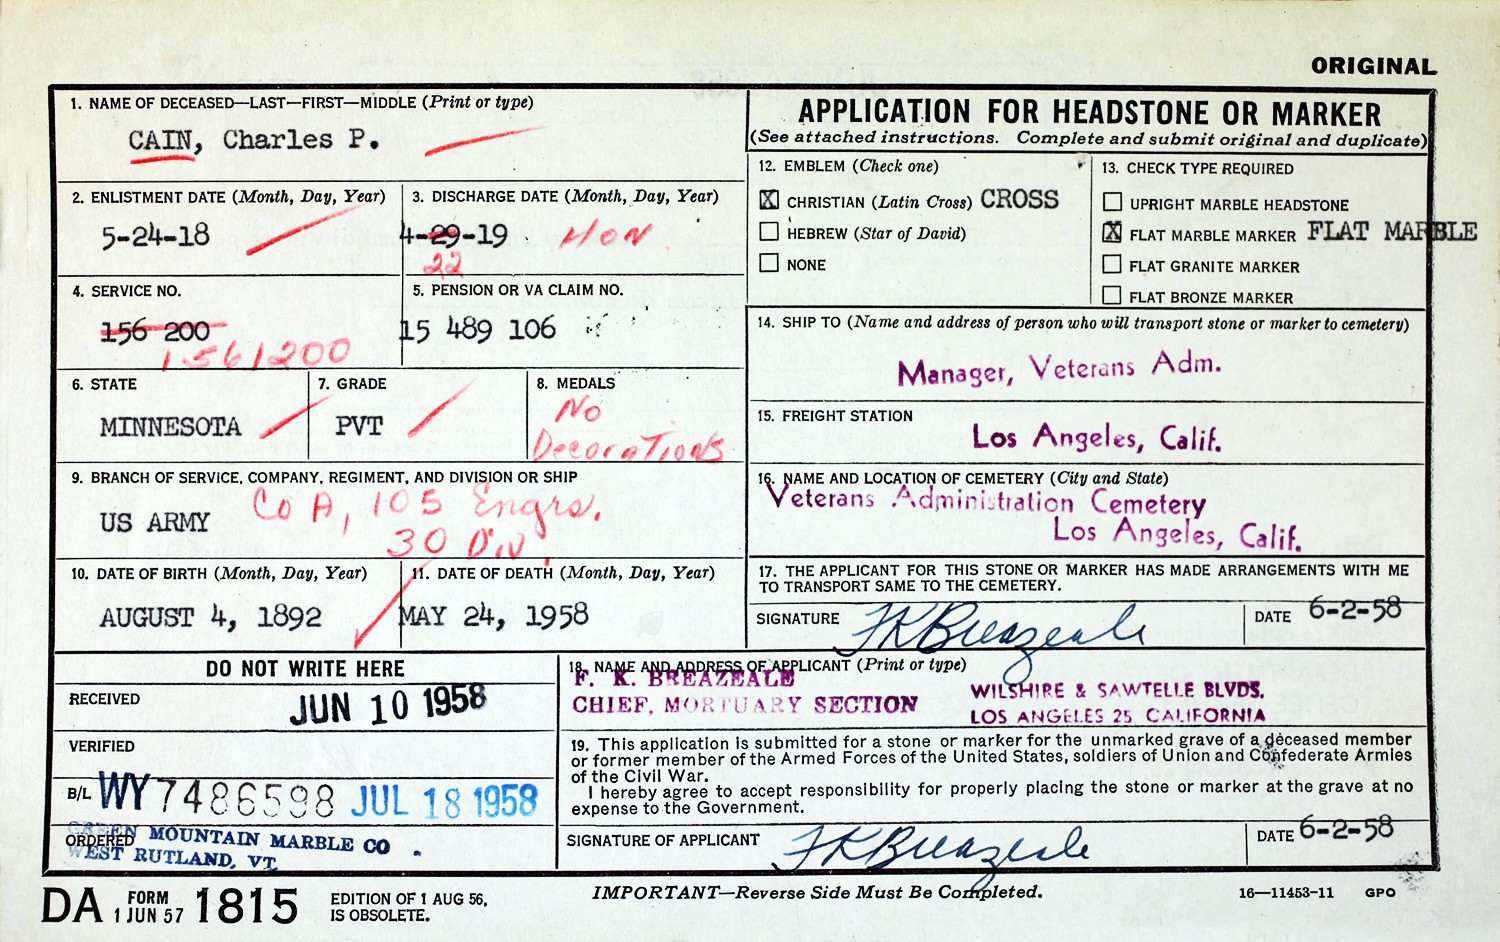 ORIGINAL
1. NAME OF DECEASED—LAST—FIRST—MIDDLE (Print or type)
CAIN, Charles P.
APPLICATION FOR HEADSTONE OR MARKER
(See attached instructions. Complete and submit original and duplicate)
2. ENLISTMENT DATE (Month, Day, Year)
5-24-18
3. DISCHARGE DATE (Month, Day, Year)
4-29-19 HON
22
4. SERVICE NO.
156 200
1561200
5. PENSION OR VA CLAIM NO.
15 489 106
6. STATE
MINNESOTA
7. GRADE
PVT
8. MEDALS
No
Decorations
9. BRANCH OF SERVICE, COMPANY, REGIMENT, AND DIVISION OR SHIP
US ARMY Co A, 105 Engrs.
30 Div.
10. DATE OF BIRTH (Month, Day, Year)
AUGUST 4, 1892
11. DATE OF DEATH (Month, Day, Year)
MAY 24, 1958
12. EMBLEM (Check one)
X CHRISTIAN (Latin Cross) CROSS
HEBREW (Star of David)
NONE
13. CHECK TYPE REQUIRED
UPRIGHT MARBLE HEADSTONE
X FLAT MARBLE MARKER FLAT MARBLE
FLAT GRANITE MARKER
FLAT BRONZE MARKER
14. SHIP TO (Name and address of person who will transport stone or marker to cemetery)
Manager, Veterans Adm.
15. FREIGHT STATION
Los Angeles, Calif.
16. NAME AND LOCATION OF CEMETERY (City and State)
Veterans Administration Cemetery
Los Angeles, Calif.
17. THE APPLICANT FOR THIS STONE OR MARKER HAS MADE ARRANGEMENTS WITH ME
TO TRANSPORT SAME TO THE CEMETERY.
SIGNATURE FKBreazeale DATE 6-2-58
DO NOT WRITE HERE
RECEIVED JUN 10 1958
VERIFIED
B/L WY7486598 JUL 18 1958
ORDERED
GREEN MOUNTAIN MARBLE CO.
WEST RUTLAND, VT.
18. NAME AND ADDRESS OF APPLICANT (Print or type)
F. K. BREAZEALE
CHIEF, MORTUARY SECTION
WILSHIRE & SAWTELLE BLVDS.
LOS ANGELES 25, CALIFORNIA
19. This application is submitted for a stone or marker for the unmarked grave of a deceased member
or former member of the Armed Forces of the United States, soldiers of Union and Confederate Armies
of the Civil War.
I hereby agree to accept responsibility for properly placing the stone or marker at the grave at no
expense to the Government.
SIGNATURE OF APPLICANT FKBreazeale DATE 6-2-58
DA FORM 1 JUN 57 1815
EDITION OF 1 AUG 56,
IS OBSOLETE.
IMPORTANT—Reverse Side Must Be Completed.
16—11453-11 GPO